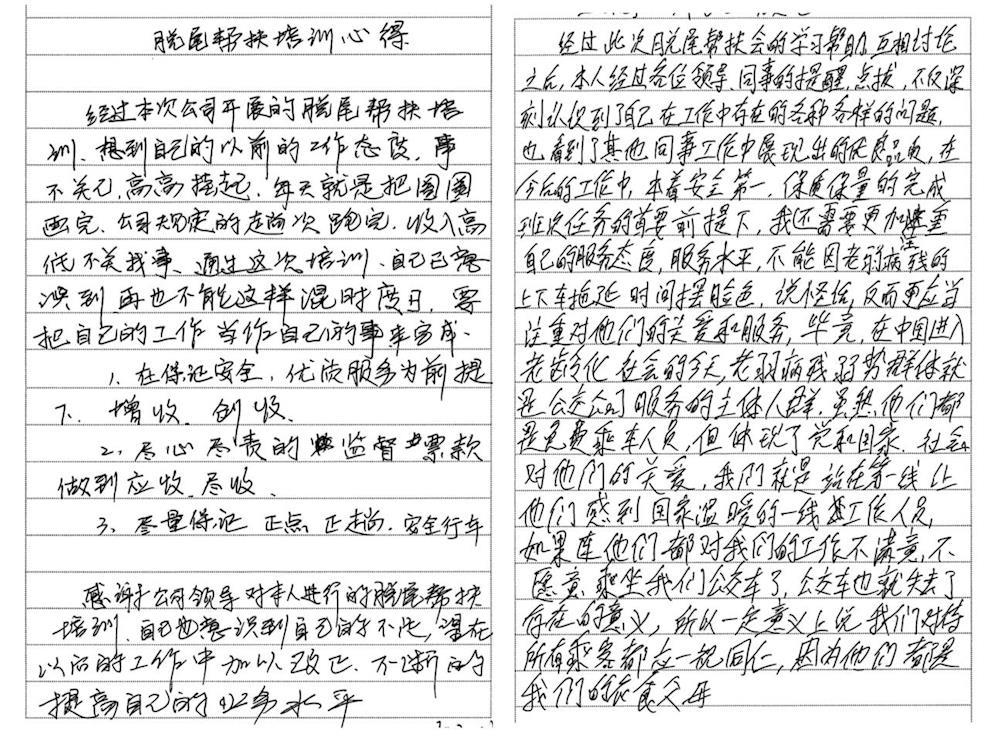 脱尾帮扶培训心得
经过本次公司开展的脱尾帮扶培
训、想到自己的以前的工作态度，事
不关己，高高挂起．每天就是把圈圈
画完．公司规定的走尚次跑完．收入高
低不关我事、通过这次培训、自己已意
识到再也不能这样混时度日，要
把自己的工作当作自己的事来完成．
1、在保证安全．优质服务为前提
下．增收．创收．
2、尽心尽责的监督票款
做到应收．尽收．
3、尽量保证正点正趟．安全行车
感谢于公司领导对本人进行的脱尾帮扶
培训、自己也意识到自己的不足，望在
以后的工作中加以改正．不断的
提高自己的业务水平
经过此次脱尾帮扶会的学习帮助、互相讨论
之后，本人经过各位领导、同事的提醒、点拔，不仅深
刻认识到了自己在工作中存在的各种各样的问题，
也看到了其他同事工作中展现出的优良品质，在
今后的工作中，本着安全第一，保质保量的完成
班次任务的首要前提下，我还需要更加注重
自己的服务态度，服务水平，不能因老弱病残的
上下车拖延时间摆脸色，说怪话，反而更应当
注重对他们的关爱和服务，毕竟，在中国进入
老龄化社会的今天，老弱病残弱势群体就
是公交公司服务的主体人群，虽然他们都
是免费乘车人员，但体现了党和国家、社会
对他们的关爱，我们就是站在第一线让
他们感到国家温暖的一线工作人员，
如果连他们都对我们的工作不满意，不
愿意乘坐我们公交车了，公交车也就失去了
存在的意义，所以一定意义上说我们对待
所有乘客都应一视同仁，因为他们都是
我们的衣食父母